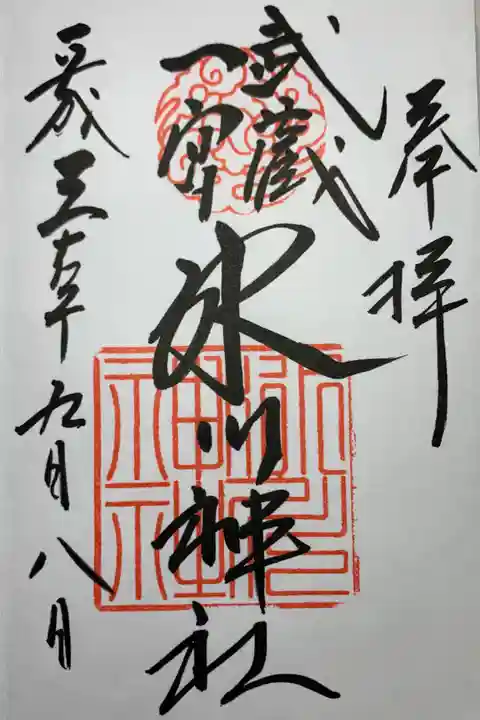 奉拝
武蔵
一宮
氷川神社
氷川
神社
平成三十年九月八日